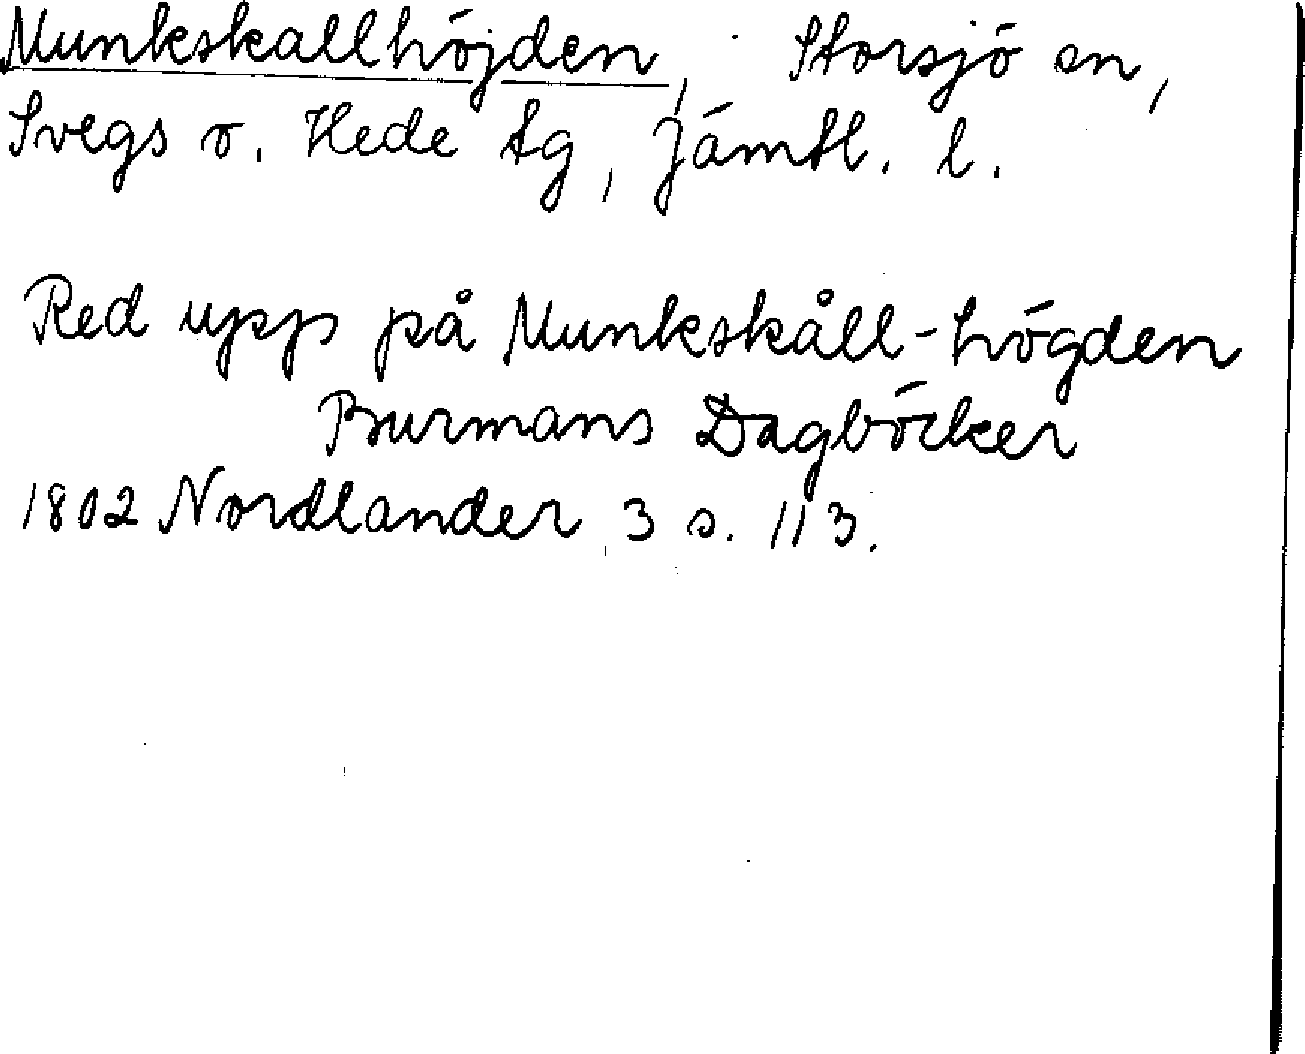 Munkskallhöjden, Storsjö sn,
Svegs o. Hede tg, Jämtl. l.
Red upp på Munkskåll-högden
Burmans Dagböcker
1802 Nordlander 3 s. 113.